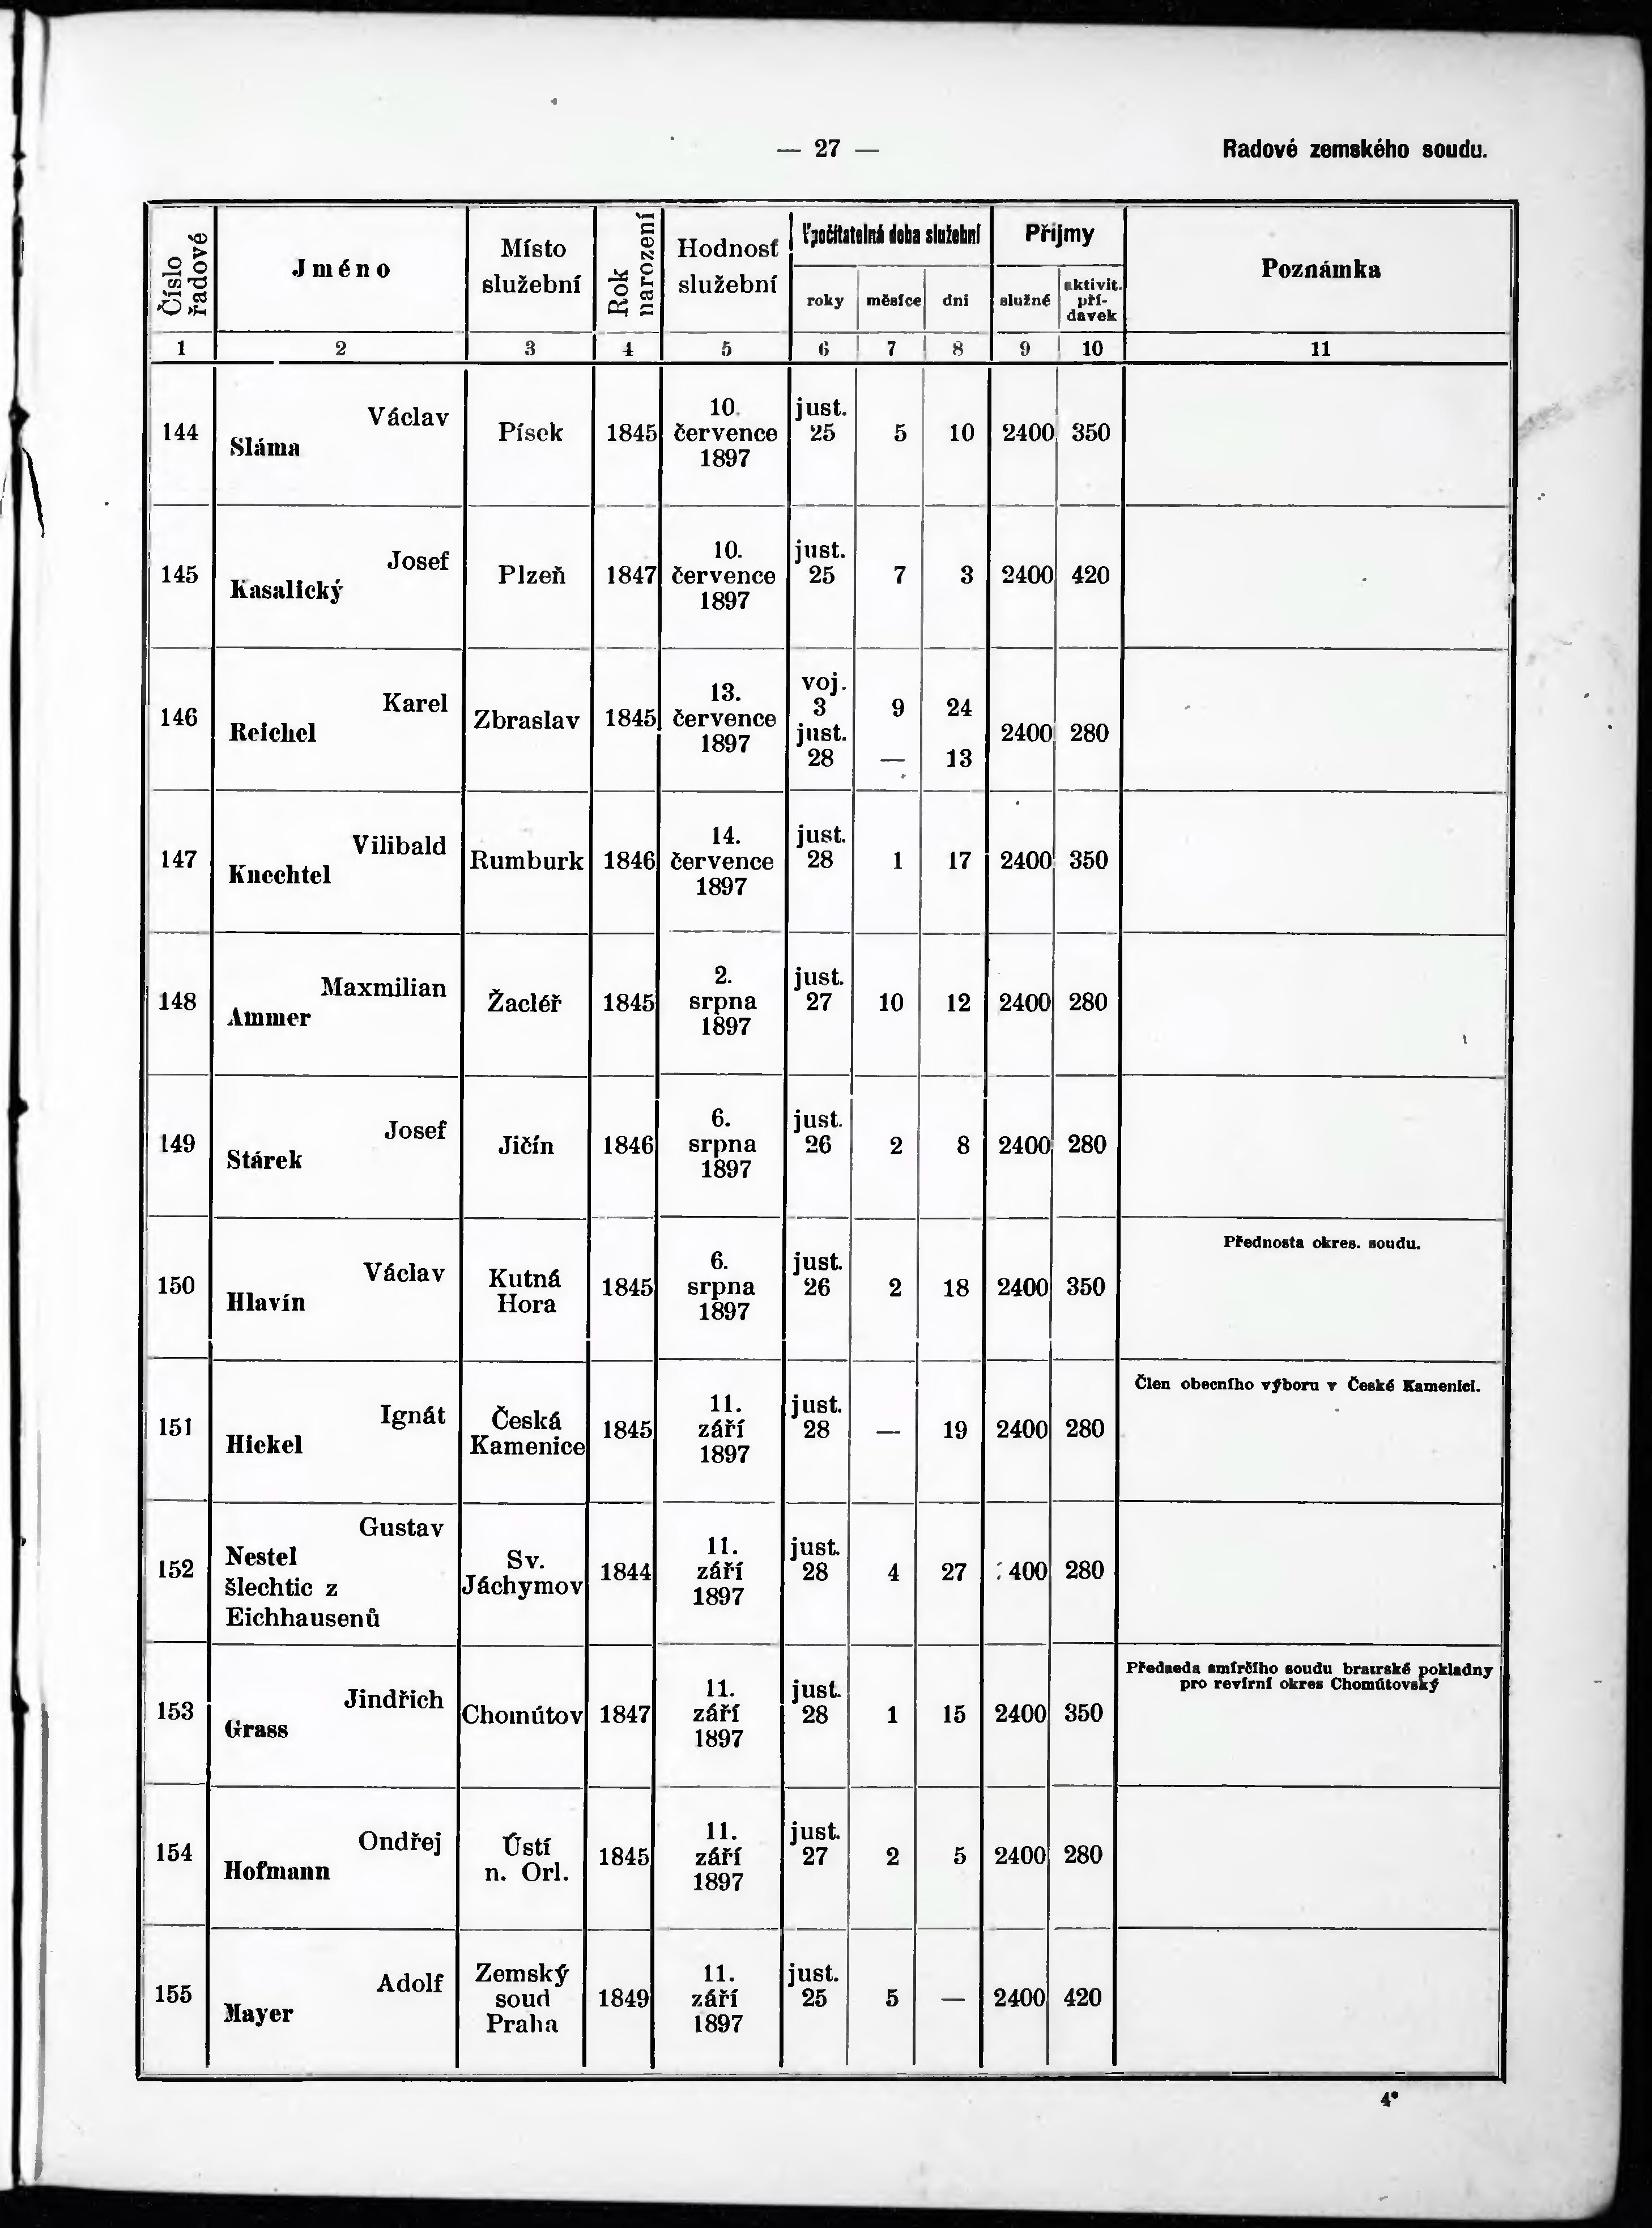 — 27 —
Radové zemského soudu.
Číslo řadové
Jméno
Místo služební
Rok narození
Hodnosť služební
Vpočítatelná doba služební
Příjmy
Poznámka
roky měsíce dni služné aktivit. pří-davek
1 2 3 4 5 6 7 8 9 10 11
144 Václav Sláma Písek 1845 10. července 1897 just. 25 5 10 2400 350
145 Josef Kasalický Plzeň 1847 10. července 1897 just. 25 7 3 2400 420
146 Karel Reichel Zbraslav 1845 13. července 1897 voj. 3 9 24 just. 28 — 13 2400 280
147 Vilibald Knechtel Rumburk 1846 14. července 1897 just. 28 1 17 2400 350
148 Maxmilian Ammer Žacléř 1845 2. srpna 1897 just. 27 10 12 2400 280
149 Josef Stárek Jičín 1846 6. srpna 1897 just. 26 2 8 2400 280
150 Václav Hlavín Kutná Hora 1845 6. srpna 1897 just. 26 2 18 2400 350 Přednosta okres. soudu.
151 Ignát Hickel Česká Kamenice 1845 11. září 1897 just. 28 — 19 2400 280 Člen obecního výboru v České Kamenici.
152 Gustav Nestel šlechtic z Eichhausenů Sv. Jáchymov 1844 11. září 1897 just. 28 4 27 400 280
153 Jindřich Grass Chomútov 1847 11. září 1897 just. 28 1 15 2400 350 Předseda smírčího soudu bratrské pokladny pro revírní okres Chomútovský
154 Ondřej Hofmann Ústí n. Orl. 1845 11. září 1897 just. 27 2 5 2400 280
155 Adolf Mayer Zemský soud Praha 1849 11. září 1897 just. 25 5 — 2400 420
4*